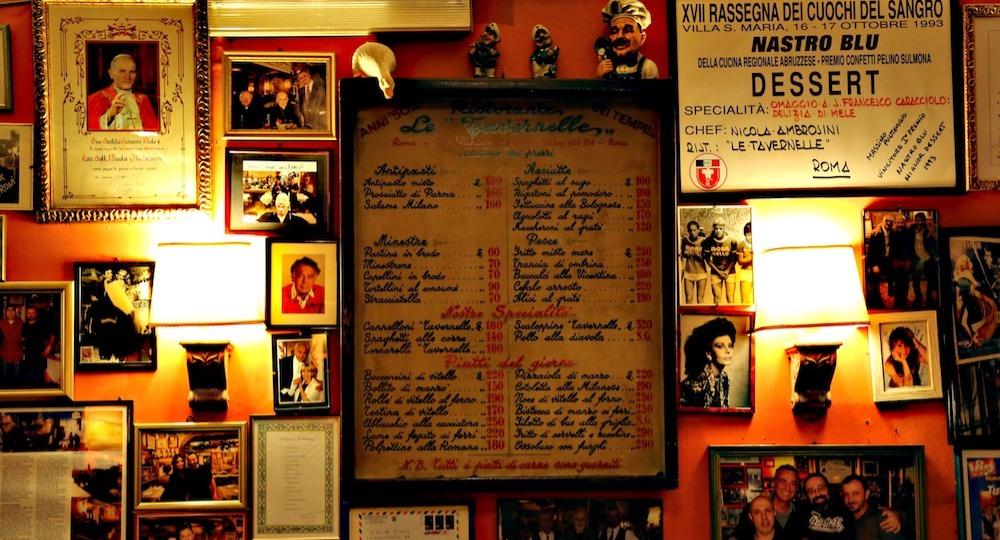 XVII RASSEGNA DEI CUOCHI DEL SANGRO
VILLA S. MARIA, 16 - 17 OTTOBRE 1993
NASTRO BLU
DELLA CUCINA REGIONALE ABRUZZESE - PREMIO CONFETTI PELINO SULMONA
DESSERT
SPECIALITÀ: OMAGGIO A J. FRANCESCO CARACCIOLO:
DELIZIA DI MELE
CHEF: NICOLA AMBROSINI
RIST.: "LE TAVERNELLE"
ROMA
MASSIMO PUNTEGGIO
VINCITORE 1° PREMIO
NASTRO BLU
MIGLIOR DESSERT
1993
ANNI '50
Ristorante
Le "Tavernelle"
Roma
Roma
Antipasti
Antipasto misto
Prosciutto di Parma 160
Salame Milano 160
Minestre
Pastina in brodo £ 60
Minestrone 70
Capellini in brodo 70
Tortellini al consumè 90
Stracciatella 70
Asciutte
Spaghetti al sugo £ 100
Rigatoni al pomodoro 100
Fettuccine alla Bolognese 150
Agnolotti al ragù 170
Maccheroni al gratè 120
Pesce
Fritto misto mare £ 250
Trancia di ombrina 250
Baccalà alla Vicentina 180
Cefalo arrosto 220
Alici al grati 190
Nostre Specialità
Cannelloni Tavernelle £ 180
Spaghetti alle cozze 140
Tonnarelli Tavernelle 160
Scaloppine Tavernelle £ 320
Pollo alla diavola S.G.
Piatti del giorno
Bocconcini di vitello £ 220
Bollito di manzo 150
Rolle di vitello al forno 190
Testina di vitello 170
Abbacchio alla cacciatora 250
Lame di fegato ai ferri 220
Polpettine alla Romana 180
Pizzaiola di manzo £ 220
Cotoletta alla Milanese 190
Noce di vitello al forno 250
Bistecca di manzo ai ferri 250
Filetto di bue alla griglia S.G.
Fritto di cervelli e zucchine 290
Ossobuco con funghi 290
N.B. Tutti i piatti di carne sono guarniti